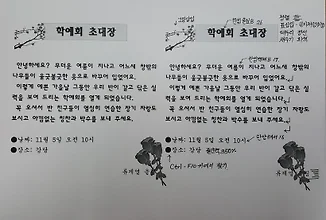 학예회 초대장
안녕하세요? 무더운 여름이 지나고 어느새 창밖의
나무들이 울긋불긋한 옷으로 바꾸어 입었어요.
이렇게 예쁜 가을날 그동안 우리 반이 갈고 닦은 실
력을 보여 드리는 학예회를 열게 되었습니다.
꼭 오셔서 반 친구들이 열심히 연습한 장기 자랑도
보시고 아낌없는 칭찬과 박수를 보내 주세요.
●날짜: 11월 5일 오전 10시
●장소: 강당
유재열
학예회 초대장
안녕하세요? 무더운 여름이 지나고 어느새 창밖의
나무들이 울긋불긋한 옷으로 바꾸어 입었어요.
이렇게 예쁜 가을날 그동안 우리 반이 갈고 닦은 실
력을 보여 드리는 학예회를 열게 되었습니다.
꼭 오셔서 반 친구들이 열심히 연습한 장기 자랑도
보시고 아낌없는 칭찬과 박수를 보내 주세요.
●날짜: 11월 5일 오전 10시
●장소: 강당
유재열